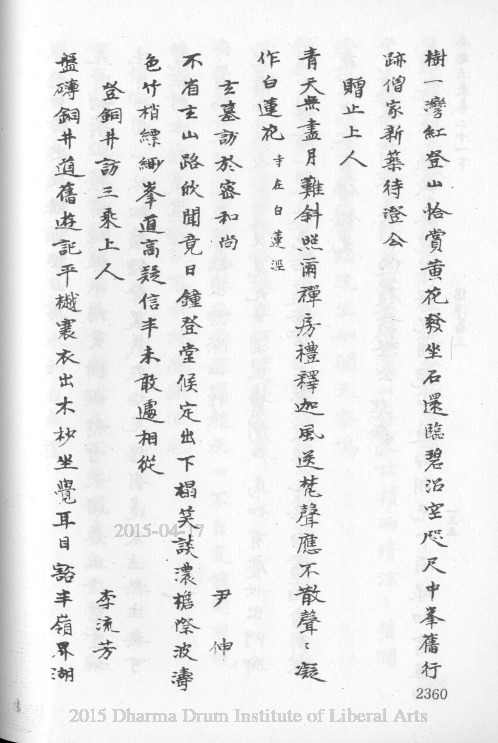 樹一灣紅登山恰賞黄花發坐石還臨碧沼空咫尺中峯舊行
跡僧家新築待澄公
贈止上人
青天無盡月難斜照爾禪房禮釋迦風送梵聲應不散聲〻凝
作白蓮花 寺在白蓮涇
玄墓訪於密和尚
尹伸
不省玄山路欣聞竟日鐘登堂候定出下榻笑談濃檐際波濤
色竹梢縹緲峯道高疑信半未敢遽相從
登銅井訪三乘上人
李流芳
盤磚銅井道舊遊記平樾褰衣出木杪坐覺耳目豁半嶺界湖
2360
2015-04-17
2015 Dharma Drum Institute of Liberal Arts